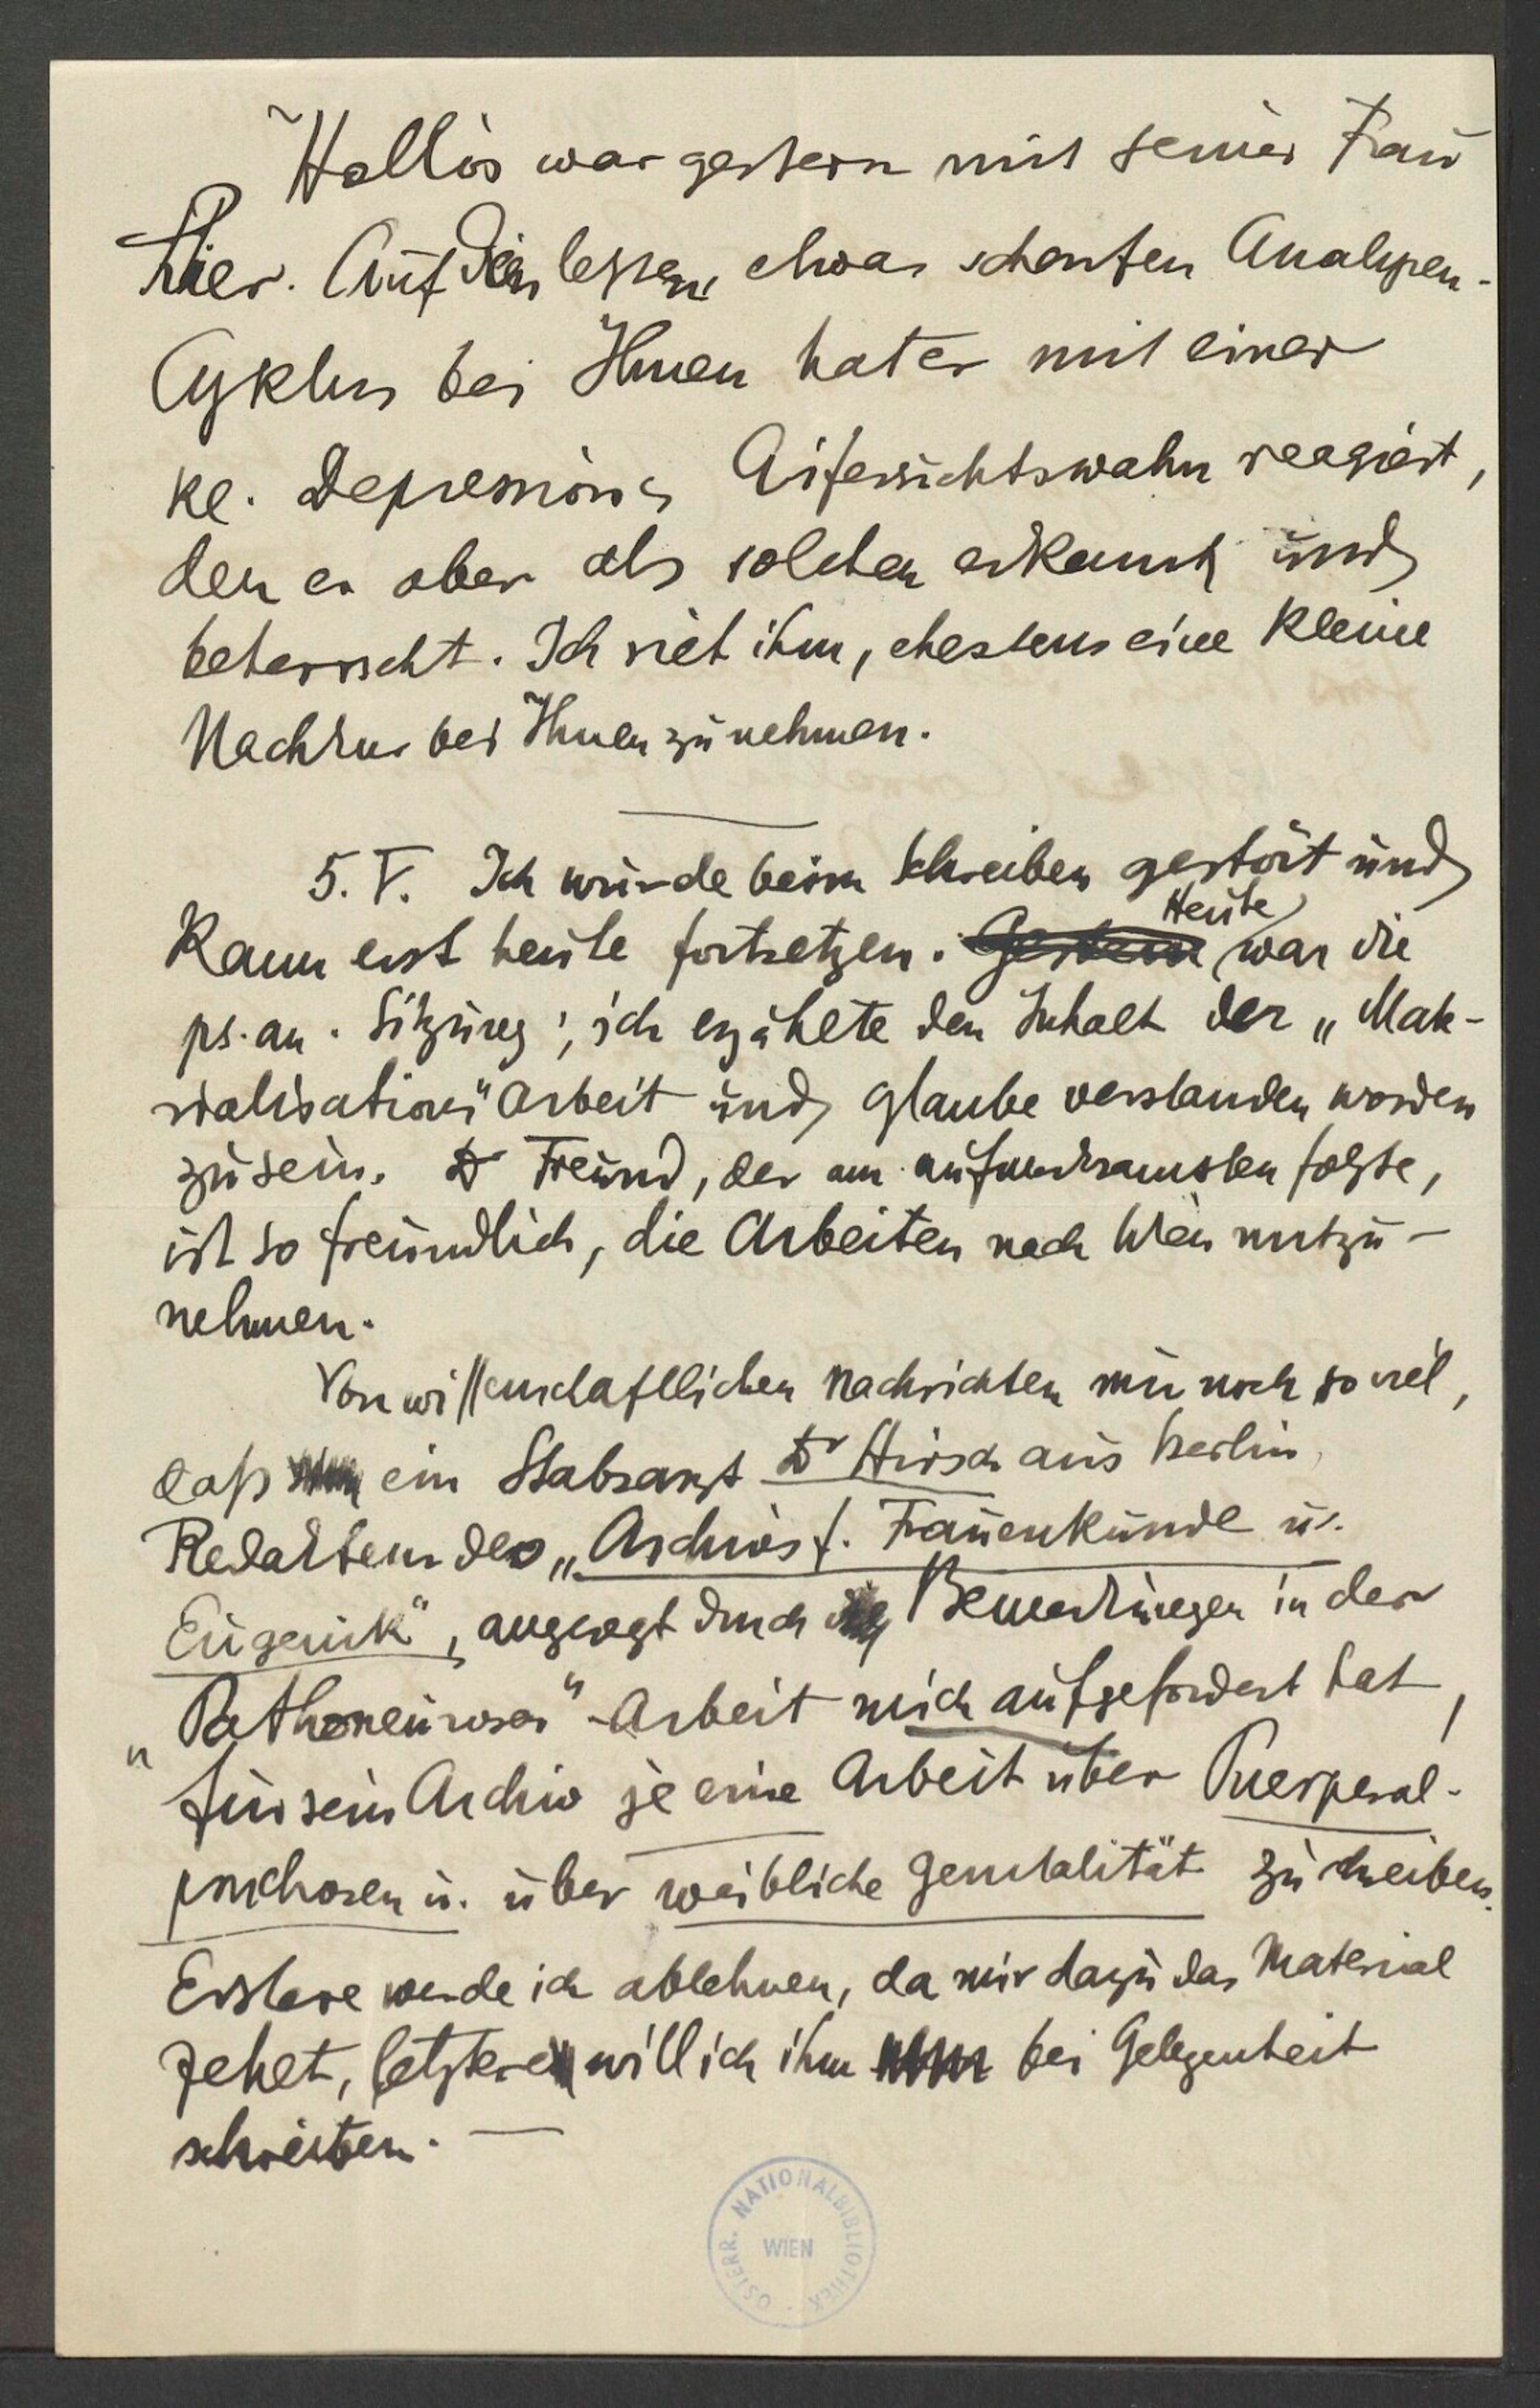 Hollós war gestern mit seiner Frau
hier. Auf den letzten, etwas scharfen Analysen-
Cyklus bei Ihnen hat er mit einer
kl. Depression u Eifersichtswahn reagiert,
den er aber als solchen erkannt und
beherrscht. Ich riet ihm, ehestens eine kleine
Nachkur bei Ihnen zu nehmen.
5. V. Ich wurde beim Schreiben gestört und
kann erst heute fortsetzen. Gestern Heute war die
ps. an. Sitzung; ich erzählte den Inhalt der „Mate-
rialisations" Arbeit und glaube verstanden worden
zu sein. Dr Freund, der am aufmerksamsten folgte,
ist so freundlich, die Arbeiten nach Wien mitzu-
nehmen.
Von wissenschaftlichen Nachrichten nur noch so viel,
daß ein Stabsarzt Dr Hirsch aus Berlin,
Redakteur des „Archivs f. Frauenkunde u.
Eugenik", angeregt durch Bemerkungen in der
„Pathoneurosen"-Arbeit mich aufgefordert hat,
für sein Archiv je eine Arbeit über Puerperal-
psychosen u. über weibliche Genitalität zu schreiben.
Erstere werde ich ablehnen, da mir dazu das Material
fehlt, letztere will ich ihm bei Gelegenheit
schreiben. —
ÖSTERR. NATIONALBIBLIOTHEK
WIEN